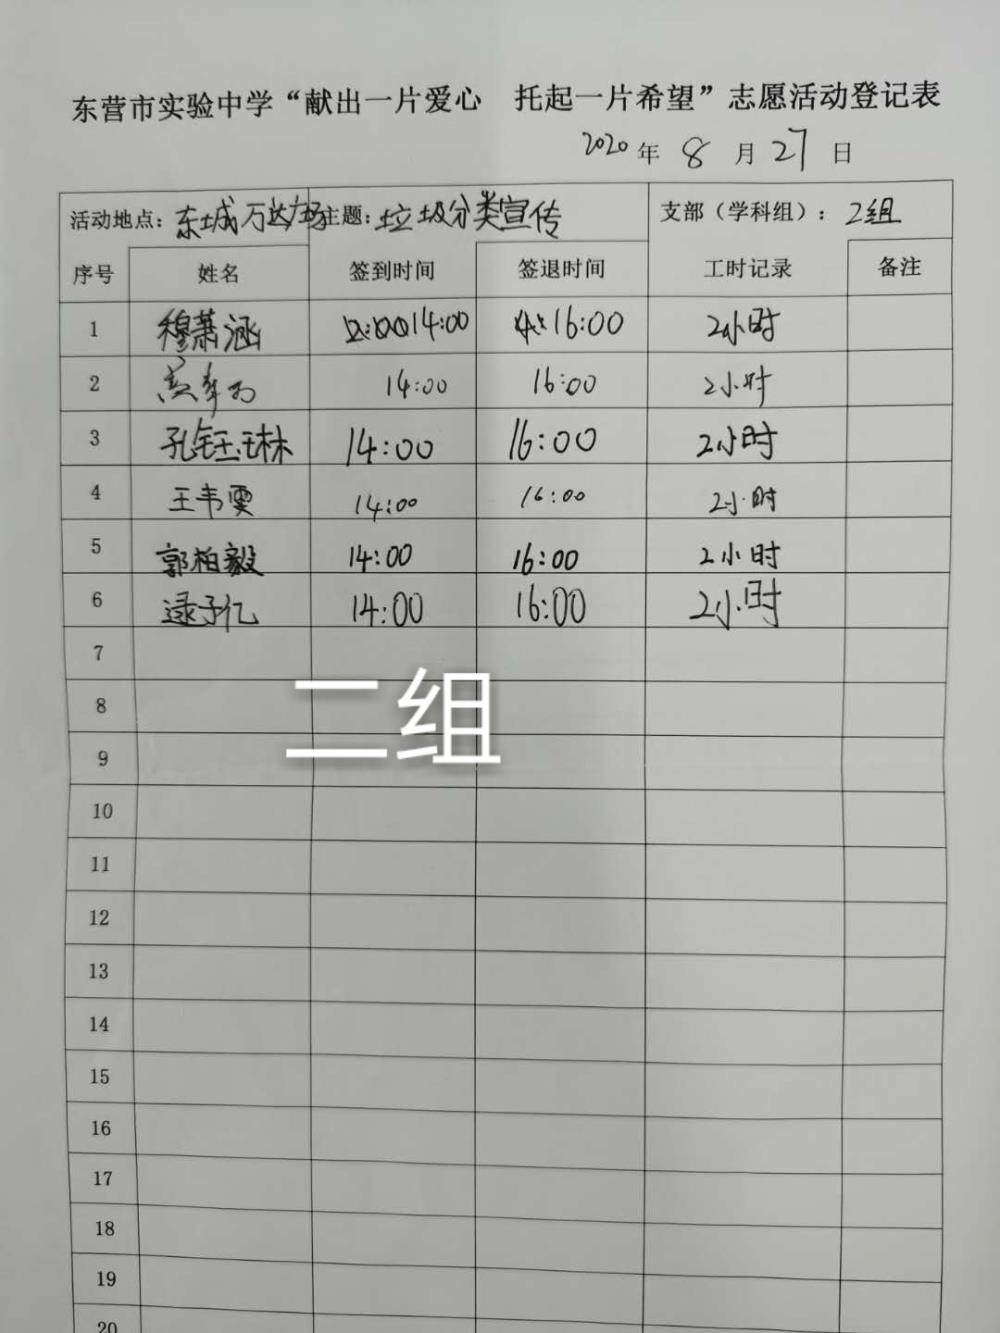 东营市实验中学“献出一片爱心 托起一片希望”志愿活动登记表
2020 年 8 月 27 日
活动地点：东城万达广场 主题：垃圾分类宣传 支部（学科组）：2组
序号 姓名 签到时间 签退时间 工时记录 备注
1 穆萧涵 14:00 16:00 2小时
2 14:00 16:00 2小时
3 孔钰琳 14:00 16:00 2小时
4 王韦雯 14:00 16:00 2小时
5 郭柏毅 14:00 16:00 2小时
6 逯子亿 14:00 16:00 2小时
7
二组
8
9
10
11
12
13
14
15
16
17
18
19
20